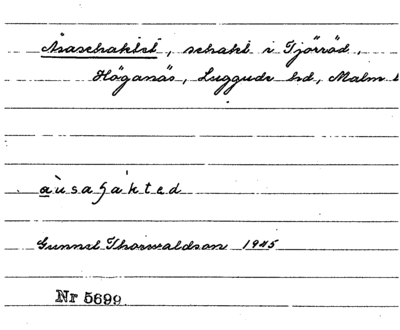 Åsaschaktet, schakt i Tjörröd,
Höganäs, Luggude hd, Malm
au̇saʃáktəd
Gunnel Thorwaldson 1945
Nr 5699